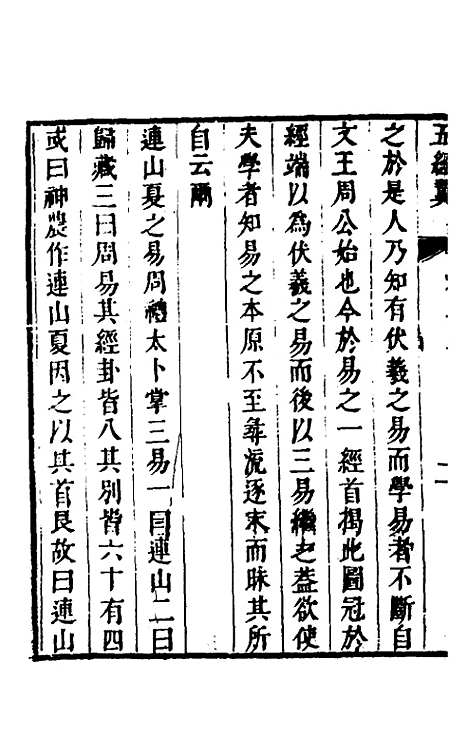 五經翼
之於是人乃知有伏羲之易而學易者不斷自
文王周公始也今於易之一經首揭此圖冠於
經端以為伏羲之易而後以三易繼之葢欲使
夫學者知易之本原不至尋流逐末而昧其所
自云爾
連山夏之易周禮太卜掌三易一曰連山二曰
歸藏三曰周易其經卦皆八其別皆六十有四
或曰神農作連山夏因之以其首艮故曰連山